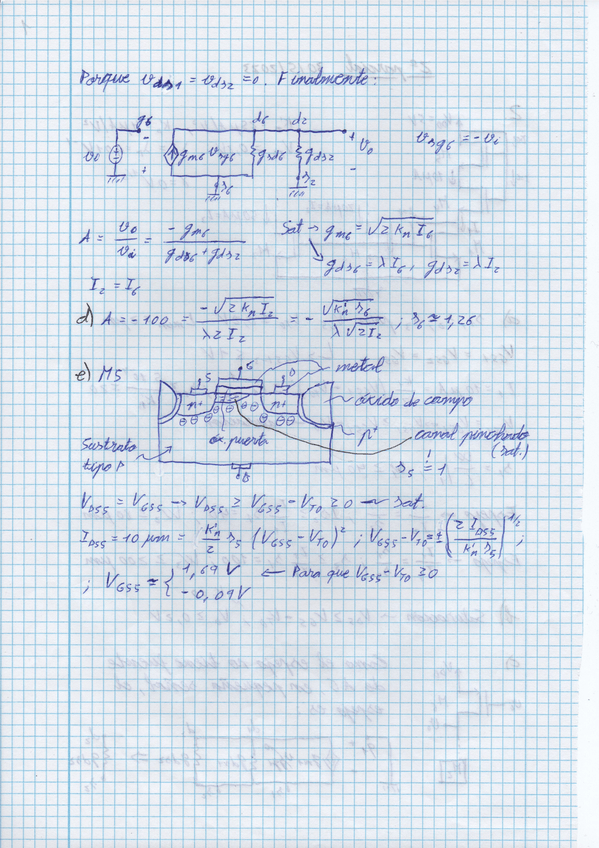 Porque vds1 = vds2 = 0. Finalmente:
g6 d6 d2
v0 - + gm6 vsg6 gds6 gds2 + vo - vsg6 = -vi
s6 s2
A = vo/vi = -gm6/(gds6 + gds2) Sat → gm6 = √(2 kn I6)
gds6 = λ I6, gds2 = λ I2
I2 = I6
d) A = -100 = -√(2 kn I2)/(λ 2 I2) = -√(k'n s6)/(λ √(2I2)) ; s6 ≃ 1,26
e) M5
S G D metal
n+ n+ óxido de campo
ox. puerta p+ canal pinchado (sat.)
Sustrato tipo P
B s5 = 1
VDS5 = VGS5 → VDS5 ≥ VGS5 - VT0 ≥ 0 ~ sat.
IDS5 = 10 μm = k'n/2 s5 (VGS5 - VT0)² ; VGS5 - VT0 = ±(2 IDS5/(k'n s5))^1/2 ;
; VGS5 ≃ { 1,69 V ← Para que VGS5 - VT0 ≥ 0
-0,09 V